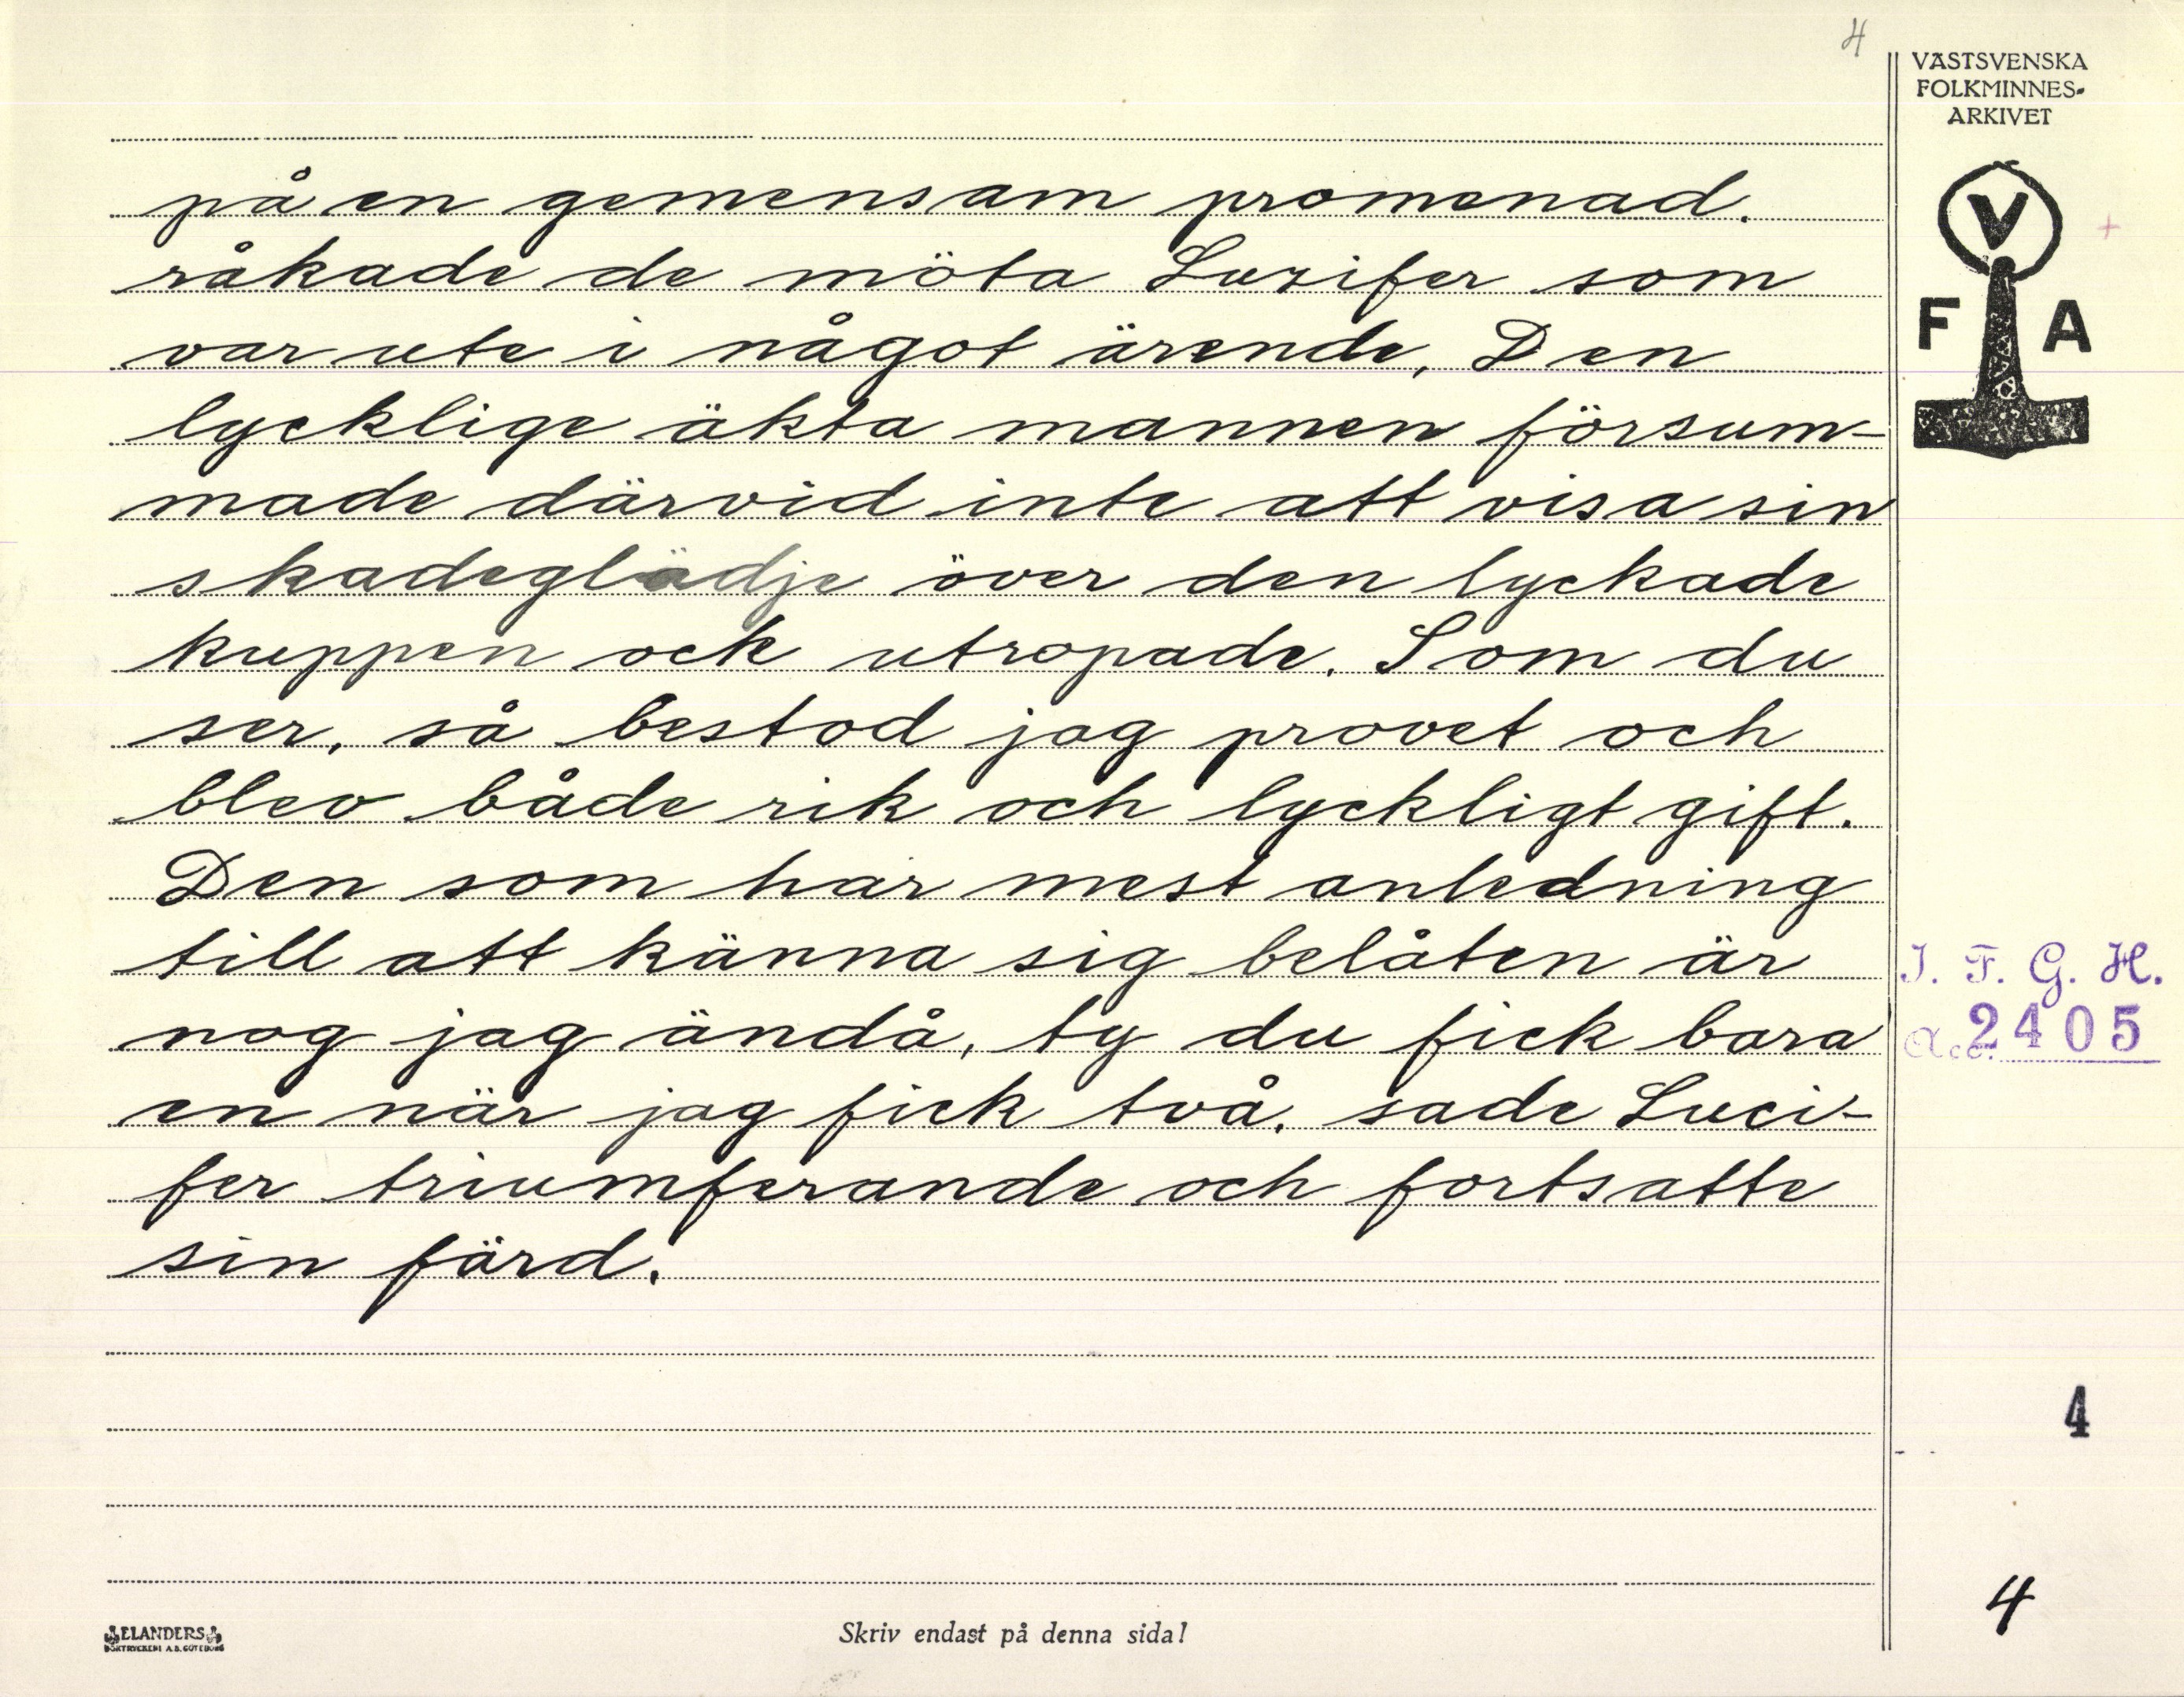 4
VÄSTSVENSKA
FOLKMINNES-
ARKIVET
V
F A
på en gemensam promenad.
råkade de möta Lusifer som
var ute i något ärende, Den
lycklige äkta mannen försum-
made därvid inte att visa sin
skadeglädje över den lyckade
kuppen ock utropade. Som du
ser, så bestod jag provet och
blev både rik och lyckligt gift.
Den som har mest anledning
till att känna sig belåten är
nog jag ändå, ty du fick bara
en när jag fick två. sade Luci-
fer triumferande och fortsatte
sin färd.
I. F. G. H.
Acc. 2405
4
4
ELANDERS
BOKTRYCKERI A.B. GÖTEBORG
Skriv endast på denna sida!